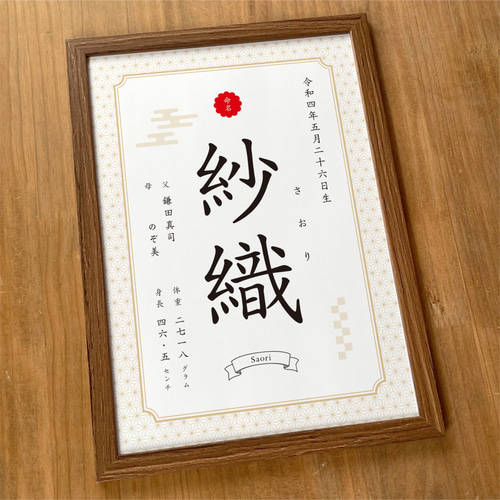 令和四年五月二十六日生
命名
紗織
さおり
父 鎌田真司
母 のぞ美
体重 二七一八グラム
身長 四六・五センチ
Saori